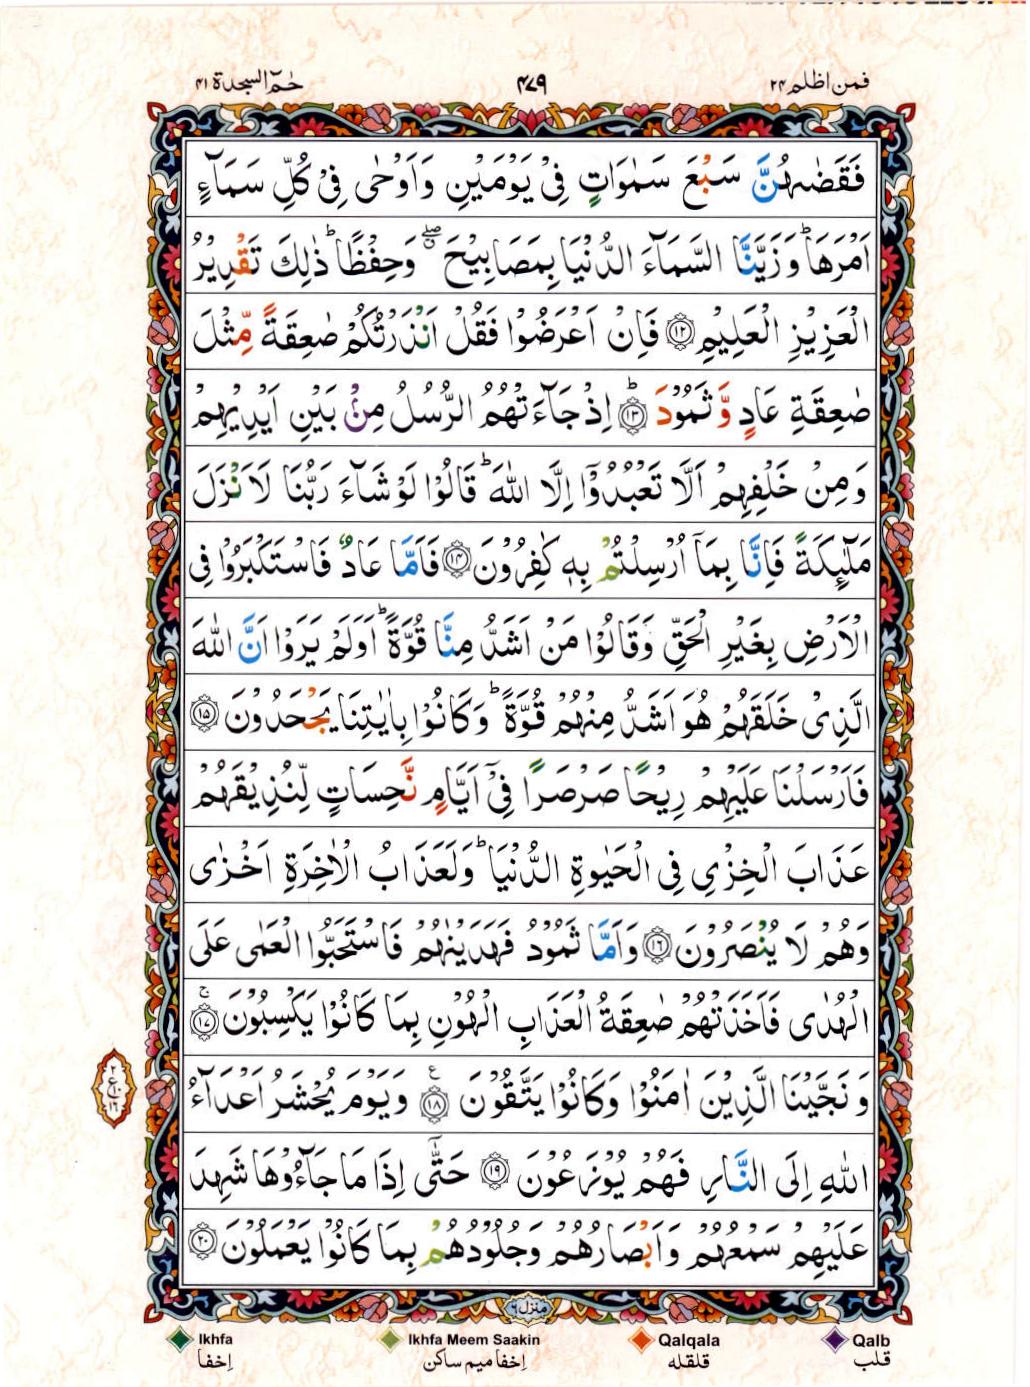 فمن اظلم ۲۴
۴۷۹
حٰمٓ السجدة ۴۱
فَقَضٰىهُنَّ سَبْعَ سَمٰوَاتٍ فِیْ یَوْمَیْنِ وَاَوْحٰی فِیْ كُلِّ سَمَآءٍ
اَمْرَهَا ؕ وَزَیَّنَّا السَّمَآءَ الدُّنْیَا بِمَصَابِیْحَ ۖۗ وَحِفْظًا ؕ ذٰلِكَ تَقْدِیْرُ
الْعَزِیْزِ الْعَلِیْمِ ۝۱۲ فَاِنْ اَعْرَضُوْا فَقُلْ اَنْذَرْتُكُمْ صٰعِقَةً مِّثْلَ
صٰعِقَةِ عَادٍ وَّثَمُوْدَ ؕ۝۱۳ اِذْ جَآءَتْهُمُ الرُّسُلُ مِنْۢ بَیْنِ اَیْدِیْهِمْ
وَمِنْ خَلْفِهِمْ اَلَّا تَعْبُدُوْۤا اِلَّا اللّٰهَ ؕ قَالُوْا لَوْ شَآءَ رَبُّنَا لَاَنْزَلَ
مَلٰٓىِٕكَةً فَاِنَّا بِمَاۤ اُرْسِلْتُمْ بِهٖ كٰفِرُوْنَ ۝۱۴ فَاَمَّا عَادٌ فَاسْتَكْبَرُوْا فِی
الْاَرْضِ بِغَیْرِ الْحَقِّ وَقَالُوْا مَنْ اَشَدُّ مِنَّا قُوَّةً ؕ اَوَلَمْ یَرَوْا اَنَّ اللّٰهَ
الَّذِیْ خَلَقَهُمْ هُوَ اَشَدُّ مِنْهُمْ قُوَّةً ؕ وَكَانُوْا بِاٰیٰتِنَا یَجْحَدُوْنَ ۝۱۵
فَاَرْسَلْنَا عَلَیْهِمْ رِیْحًا صَرْصَرًا فِیْۤ اَیَّامٍ نَّحِسَاتٍ لِّنُذِیْقَهُمْ
عَذَابَ الْخِزْیِ فِی الْحَیٰوةِ الدُّنْیَا ؕ وَلَعَذَابُ الْاٰخِرَةِ اَخْزٰی
وَهُمْ لَا یُنْصَرُوْنَ ۝۱۶ وَاَمَّا ثَمُوْدُ فَهَدَیْنٰهُمْ فَاسْتَحَبُّوا الْعَمٰی عَلَی
الْهُدٰی فَاَخَذَتْهُمْ صٰعِقَةُ الْعَذَابِ الْهُوْنِ بِمَا كَانُوْا یَكْسِبُوْنَ ۚ۝۱۷
وَنَجَّیْنَا الَّذِیْنَ اٰمَنُوْا وَكَانُوْا یَتَّقُوْنَ ۝۱۸ ع وَیَوْمَ یُحْشَرُ اَعْدَآءُ
اللّٰهِ اِلَی النَّارِ فَهُمْ یُوْزَعُوْنَ ۝۱۹ حَتّٰۤی اِذَا مَا جَآءُوْهَا شَهِدَ
عَلَیْهِمْ سَمْعُهُمْ وَاَبْصَارُهُمْ وَجُلُوْدُهُمْ بِمَا كَانُوْا یَعْمَلُوْنَ ۝۲۰
منزل ۶
Ikhfa
Ikhfa Meem Saakin
Qalqala
Qalb
اِخفا
اِخفا میم ساكن
قلقله
قلب